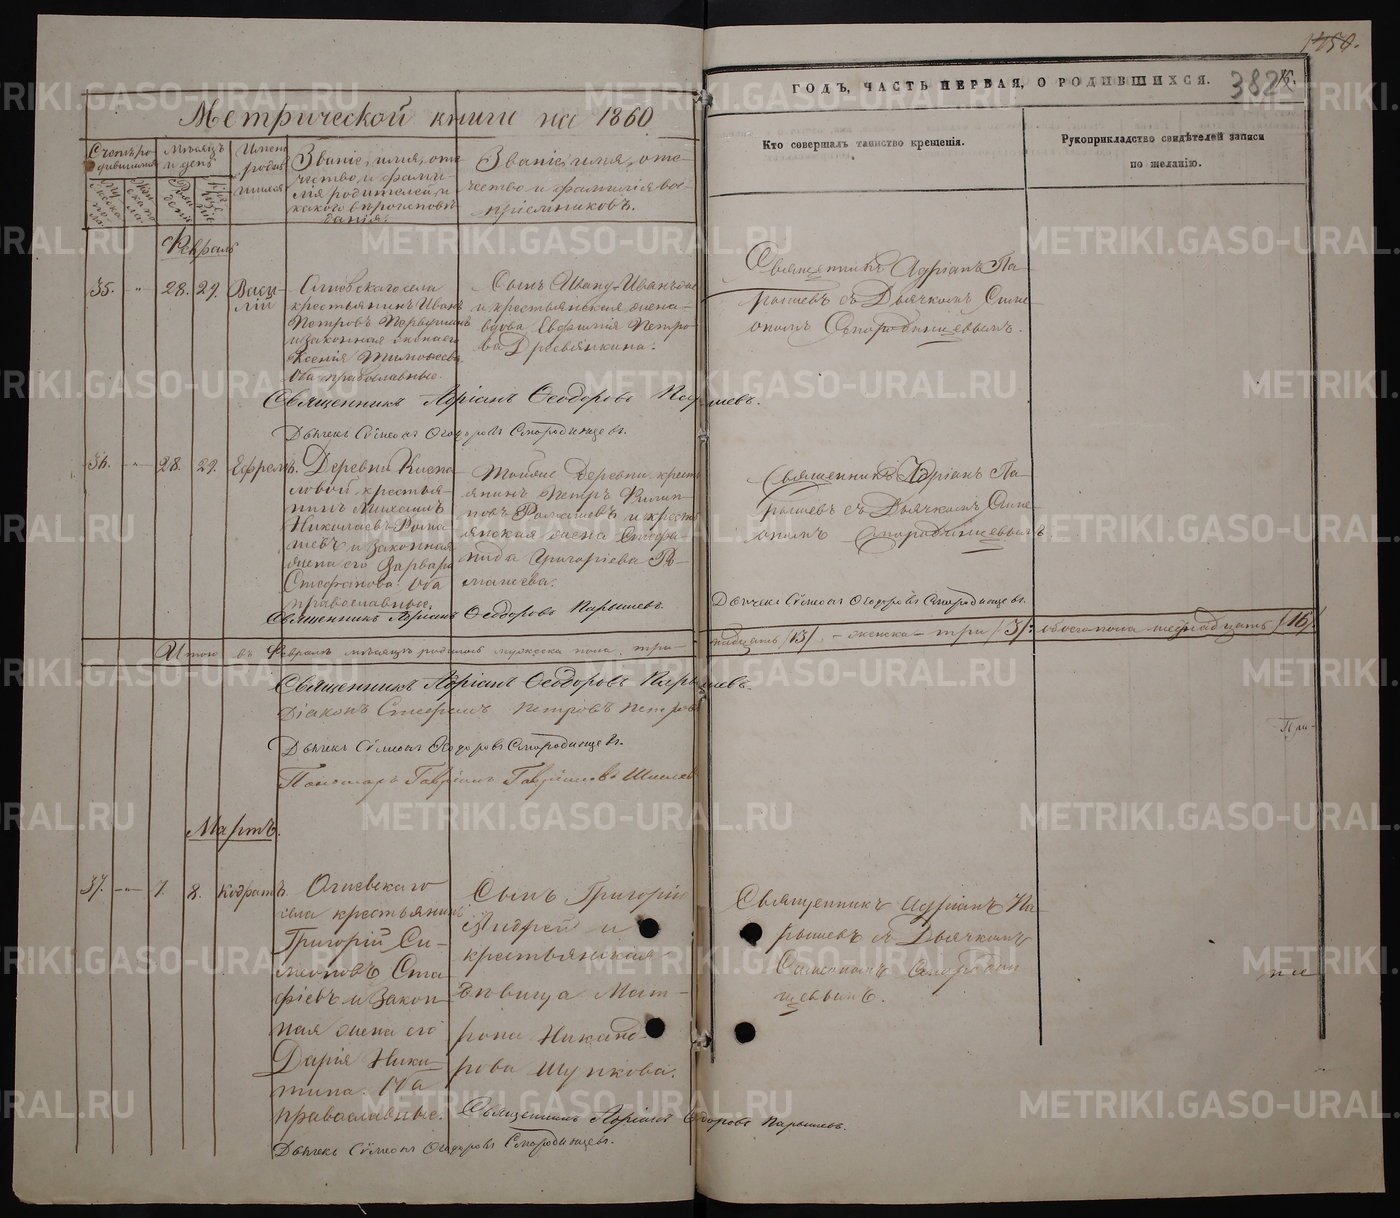 1450.
Метрической книги на 1860
ГОДЪ, ЧАСТЬ ПЕРВАЯ, О РОДИВШИХСЯ.
382
Счетъ родившихся
Мѣсяцъ и день
Имена родившихся
Званіе, имя, отечество и фамилія родителей, и какого вѣроисповѣданія.
Званіе, имя, отечество и фамилія воспріемниковъ.
Кто совершалъ таинство крещенія.
Рукоприкладство свидѣтелей записи
по желанію.
Февраль
35. - 28. 29. Василій
села
крестьянинъ Иванъ
Петровъ
и законная жена его
Ксенія Тимофеева
Оба православные.
Сынъ Иванъ
и крестьянская жена
вдова Евфимія Петрова
Древянкина.
Священникъ Адріанъ Парышевъ съ Дьячкомъ Симеономъ Смородинцевымъ.
Священникъ Адріанъ Ѳеодоровъ Парышевъ.
Дьячекъ Сѵмеонъ Ѳеодоровъ Смородинцевъ.
36. - 28. 29. Ефремъ.
Деревни
крестьянинъ Михаилъ
Николаевъ Ромашевъ и законная
жена его Варвара
Стефанова. Оба
православные.
Тойже Деревни крестьянинъ Петръ Филипповъ Ромашевъ и крестьянская жена Стефанида Григоріева Ромашева.
Священникъ Адріанъ Парышевъ съ Дьячкомъ Симеономъ Смородинцевымъ
Священникъ Адріанъ Ѳеодоровъ Парышевъ.
Дьячекъ Сѵмеонъ Ѳеодоровъ Смородинцевъ.
Итого въ Февралѣ мѣсяцѣ родилось мужеска пола три-
надцать /13/, - женска - три /3/: обоего пола шестнадцать /16/
Священникъ Адріанъ Ѳеодоровъ Парышевъ.
Діаконъ Стефанъ Петровъ
Дьячекъ Сѵмеонъ Ѳеодоровъ Смородинцевъ.
Пономарь Гавріилъ Гавріиловъ
При-
Мартъ.
37. - 7. 8. Кодратъ
Огневскаго
села крестьянинъ
Григорій Симеоновъ
и законная жена его
Дарія Никитина. Оба
православные.
Сынъ Григорій
Андрей и
крестьянская
дѣвица Матрона Никандрова Шупкова.
Священникъ Адріанъ Парышевъ съ Дьячкомъ
Симеономъ Смородинцевымъ.
Священникъ Адріанъ Ѳеодоровъ Парышевъ.
Дьячекъ Сѵмеонъ Ѳеодоровъ Смородинцевъ.
METRIKI.GASO-URAL.RU